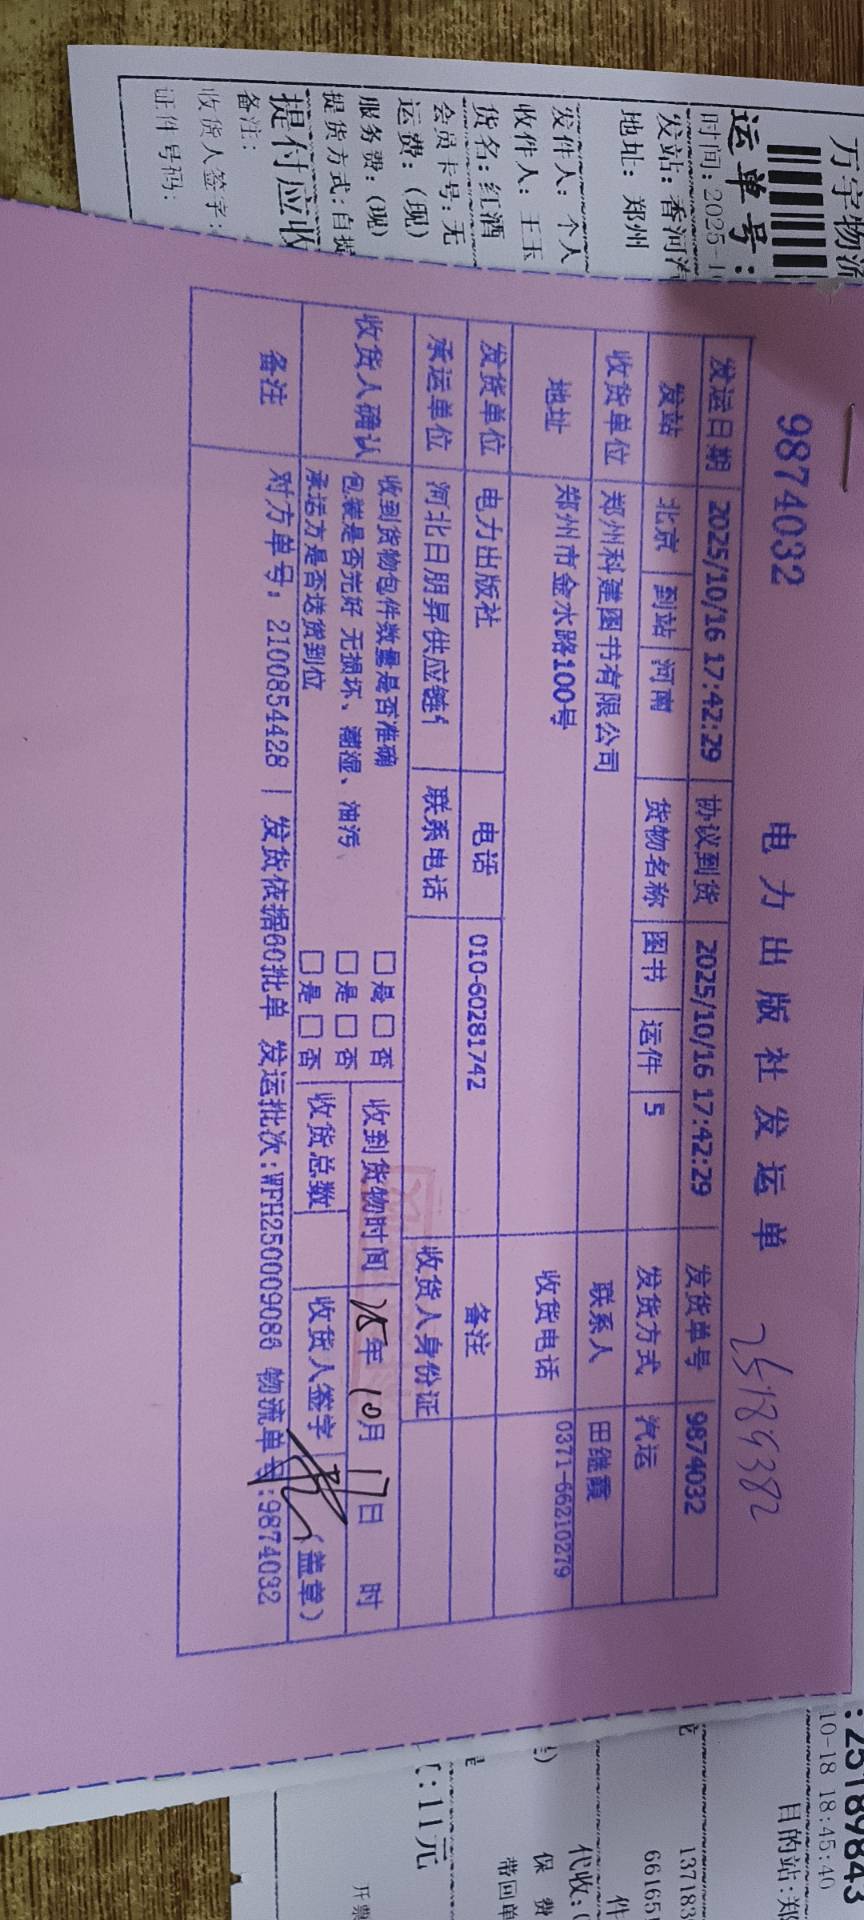 万宇物流
运单号:
:25189843
时间: 2025-1
10-18 18:45:40
发站: 香河
目的站: 郑
地址: 郑州
发件人: 个人
137183
收件人: 王玉
66165
货名: 红酒
件
会员卡号: 无
代收:
运费: (现)
保 费
服务费: (现)
带回单
提货方式: 自提
:11元
提付应收
备注:
开票
收货人签字:
证件号码:
9874032
电力出版社发运单
25189382
发运日期 2025/10/16 17:42:29 协议到货 2025/10/16 17:42:29 发货单号 9874032
发站 北京 到站 河南 货物名称 图书 运件 5 发货方式 汽运
收货单位 郑州科建图书有限公司 联系人 田继霞
地址 郑州市金水路100号 收货电话 0371-66210279
发货单位 电力出版社 电话 010-60281742 备注
承运单位 河北日朋昇供应链 联系电话 收货人身份证
收货人确认 收到货物包件数量是否准确 □是 □否 收到货物时间 25年 10月 17日 时
包装是否完好 无损坏、潮湿、油污、 □是 □否
承运方是否送货到位 □是 □否 收货总数 收货人签字 (盖章)
备注 对方单号: 2100854428 | 发货依据60批单 发运批次:WFH250009086 物流单号:9874032